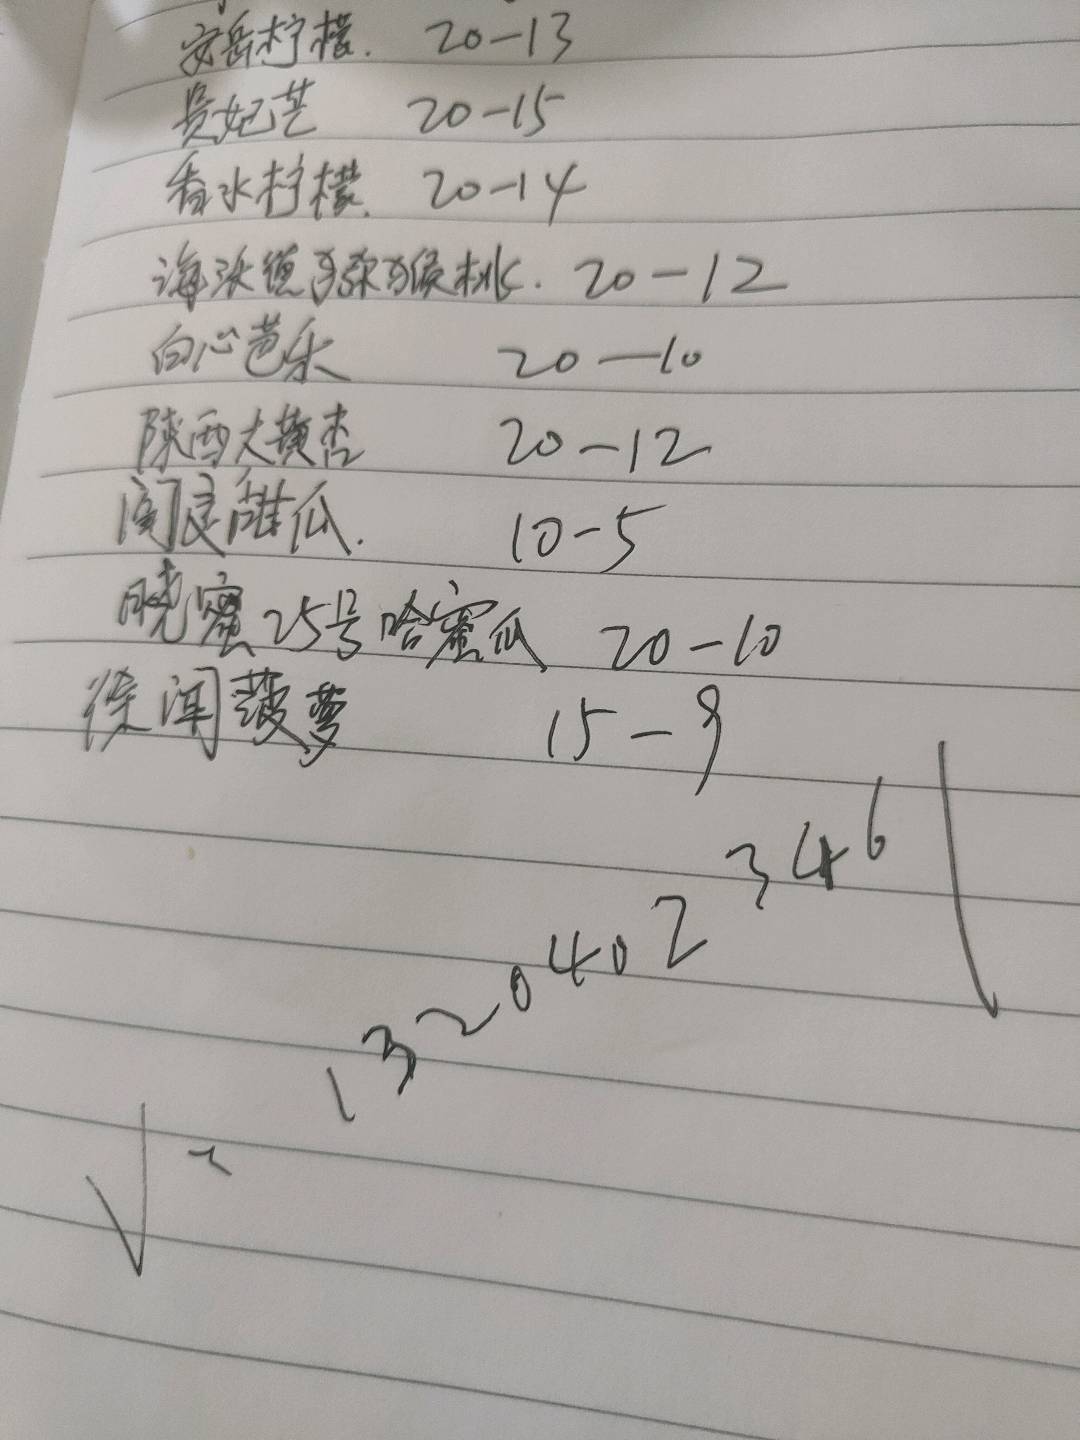 安岳柠檬. 20-13
贵妃芒 20-15
香水柠檬. 20-14
海沃德猕猴桃. 20-12
白心芭乐 20-10
陕西大黄杏 20-12
阎良甜瓜. 10-5
晓蜜25号哈蜜瓜 20-10
徐闻菠萝 15-9
13204023461